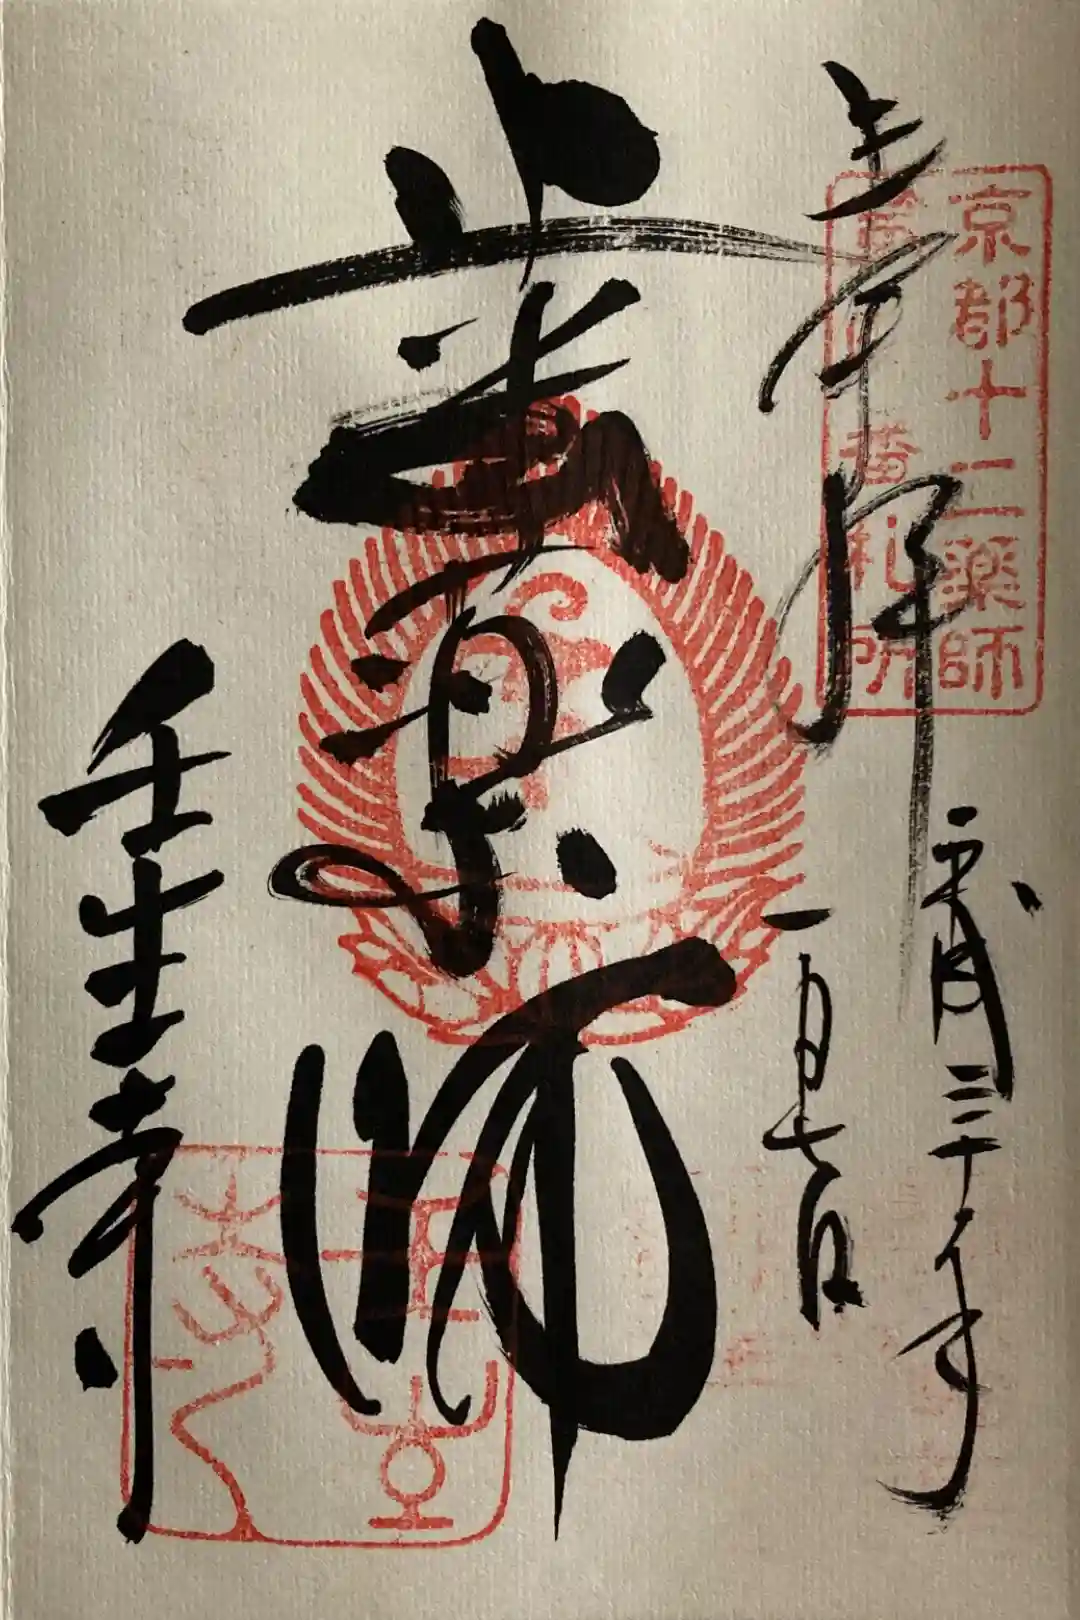 京都十二薬師
番札所
奉拝
平成三十年
一月七日
歯薬師
壬生寺